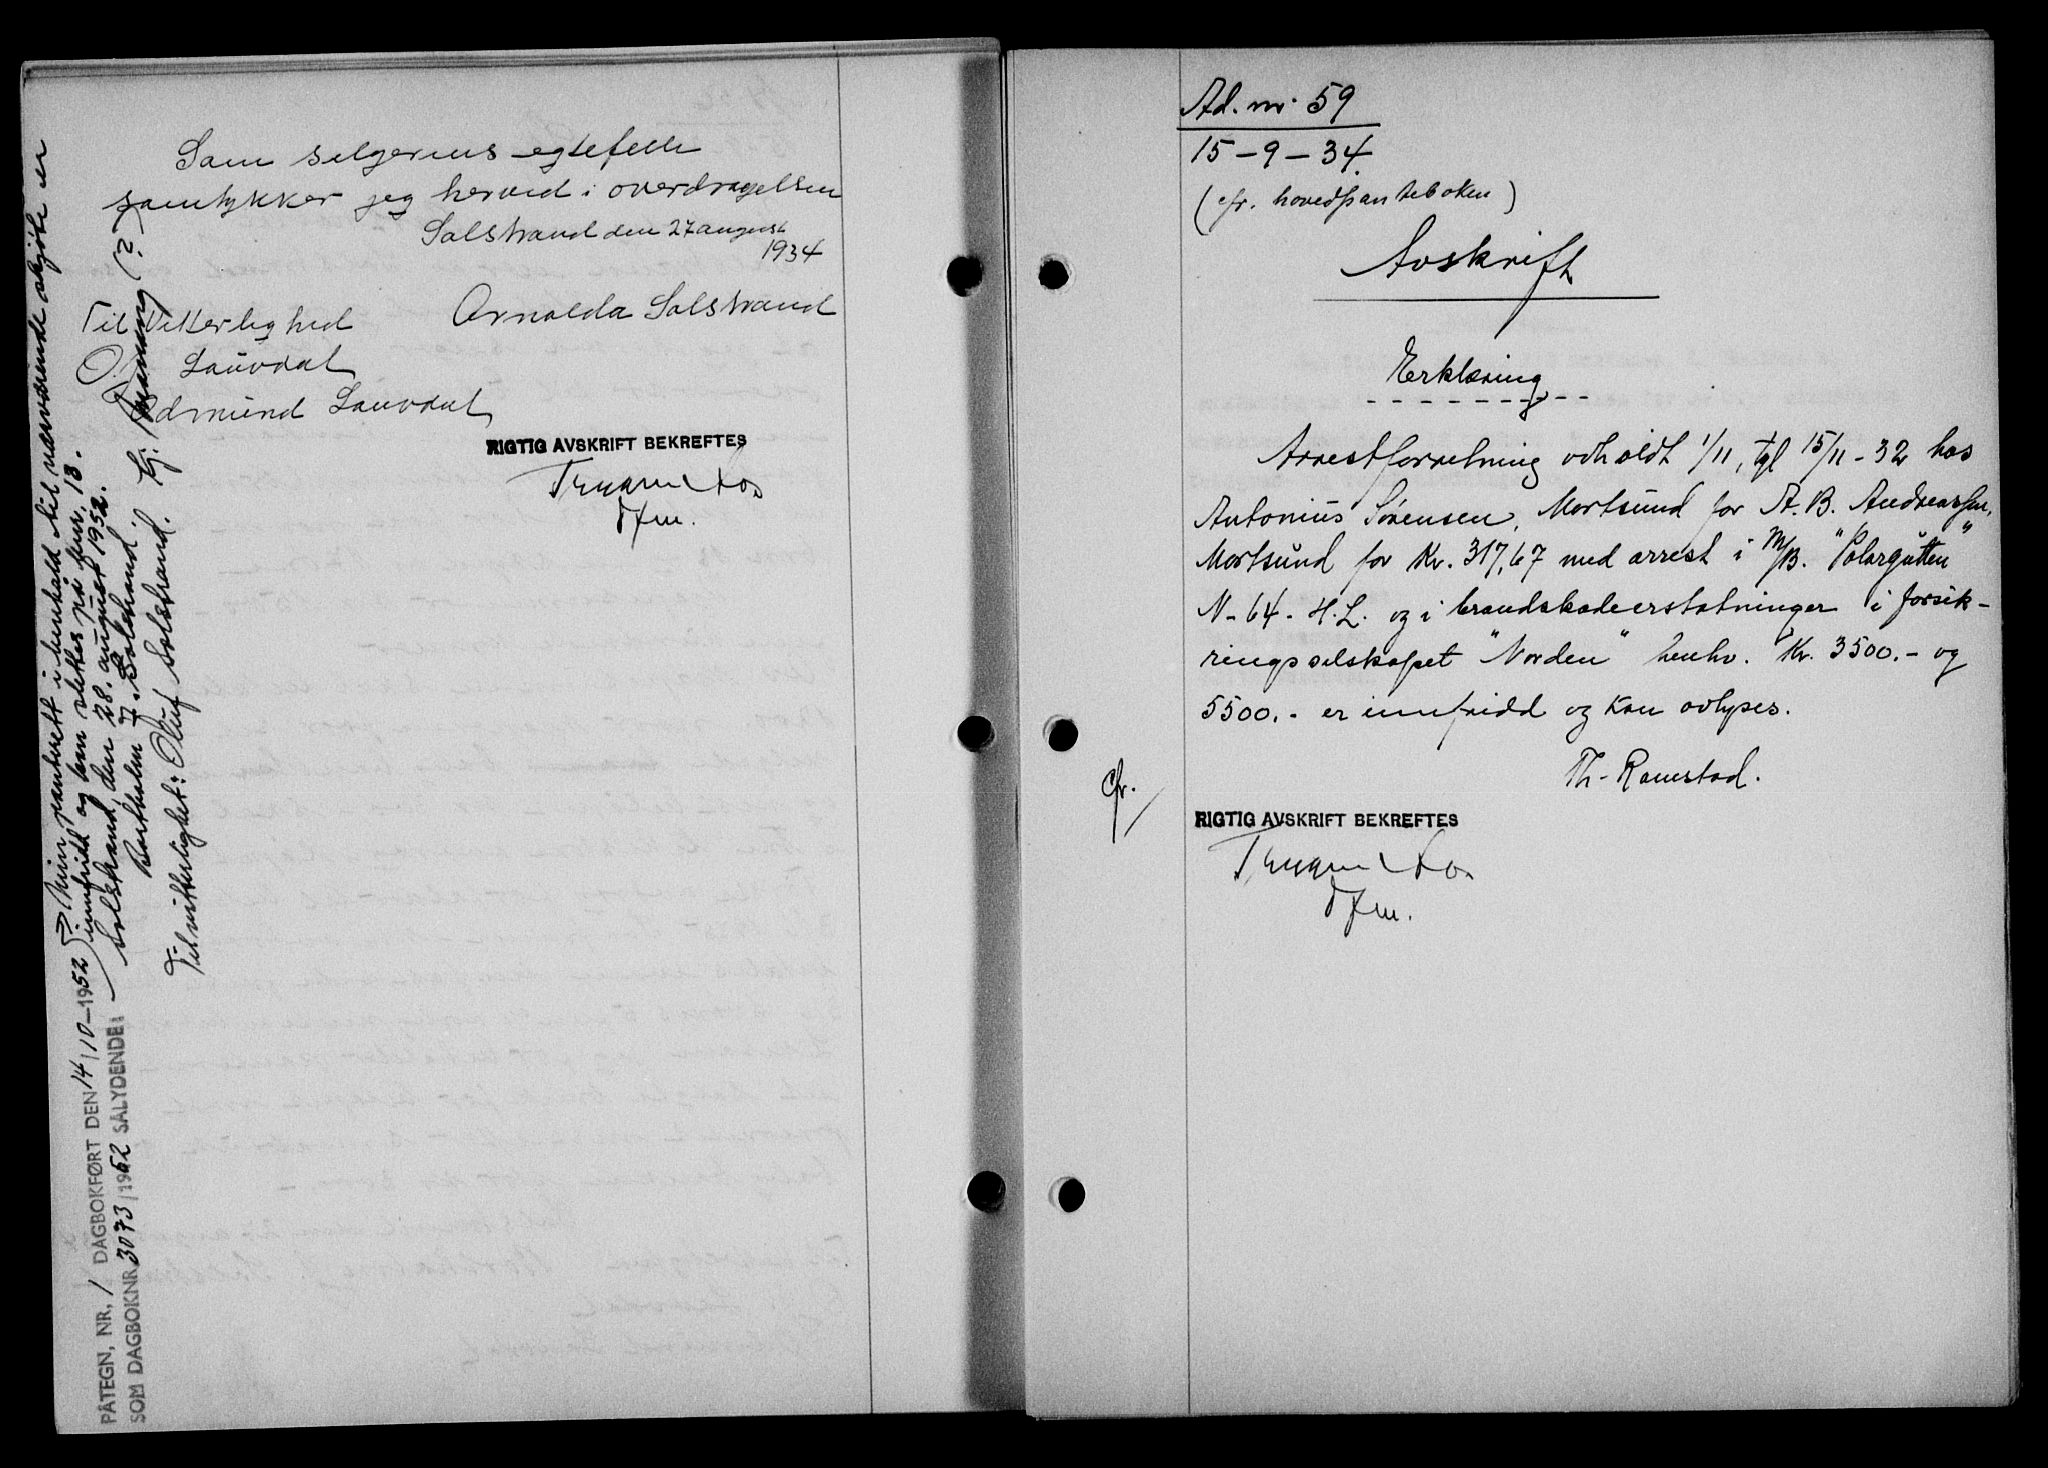 Som selgerens egtefelle
samtykker jeg herved i overdragelsen
Solstrand den 27 august
1934
Til Vitterlighed
Arnolda Solstrand
O. Lauvdal
Edmund Lauvdal
RIGTIG AVSKRIFT BEKREFTES
dfm.
PÅTEGN, NR. 1 DAGBOKFØRT DEN 14/10-1952
SOM DAGBOKNR 3073/1952 SÅLYDENDE:
Min panterett i henhold til nærværende skjøte er
innfridd og kan slettes på bnr. 13.
Solstrand, den 28. august 1952.
Bartholm J. Solstrand.
Til vitterlighet: Oluf Solstrand. Kj. Manning (?)
Ad. nr. 59
15-9-34.
(cfr. hovedpanteboken)
Avskrift
Erklæring
Arrestforretning avholdt 1/11, tgl 15/11-32 hos
Antonius Sørensen, Mortsund for A.B. Andreassen,
Mortsund for Kr. 317,67 med arrest i M/B. "Polargutten"
N-64-H.L. og i brandskadeerstatninger i forsik-
ringsselskapet "Norden" henhv. Kr. 3500.- og
5500.- er innfridd og kan avlyses.
Th. Ramstad.
cfr.
RIGTIG AVSKRIFT BEKREFTES
dfm.